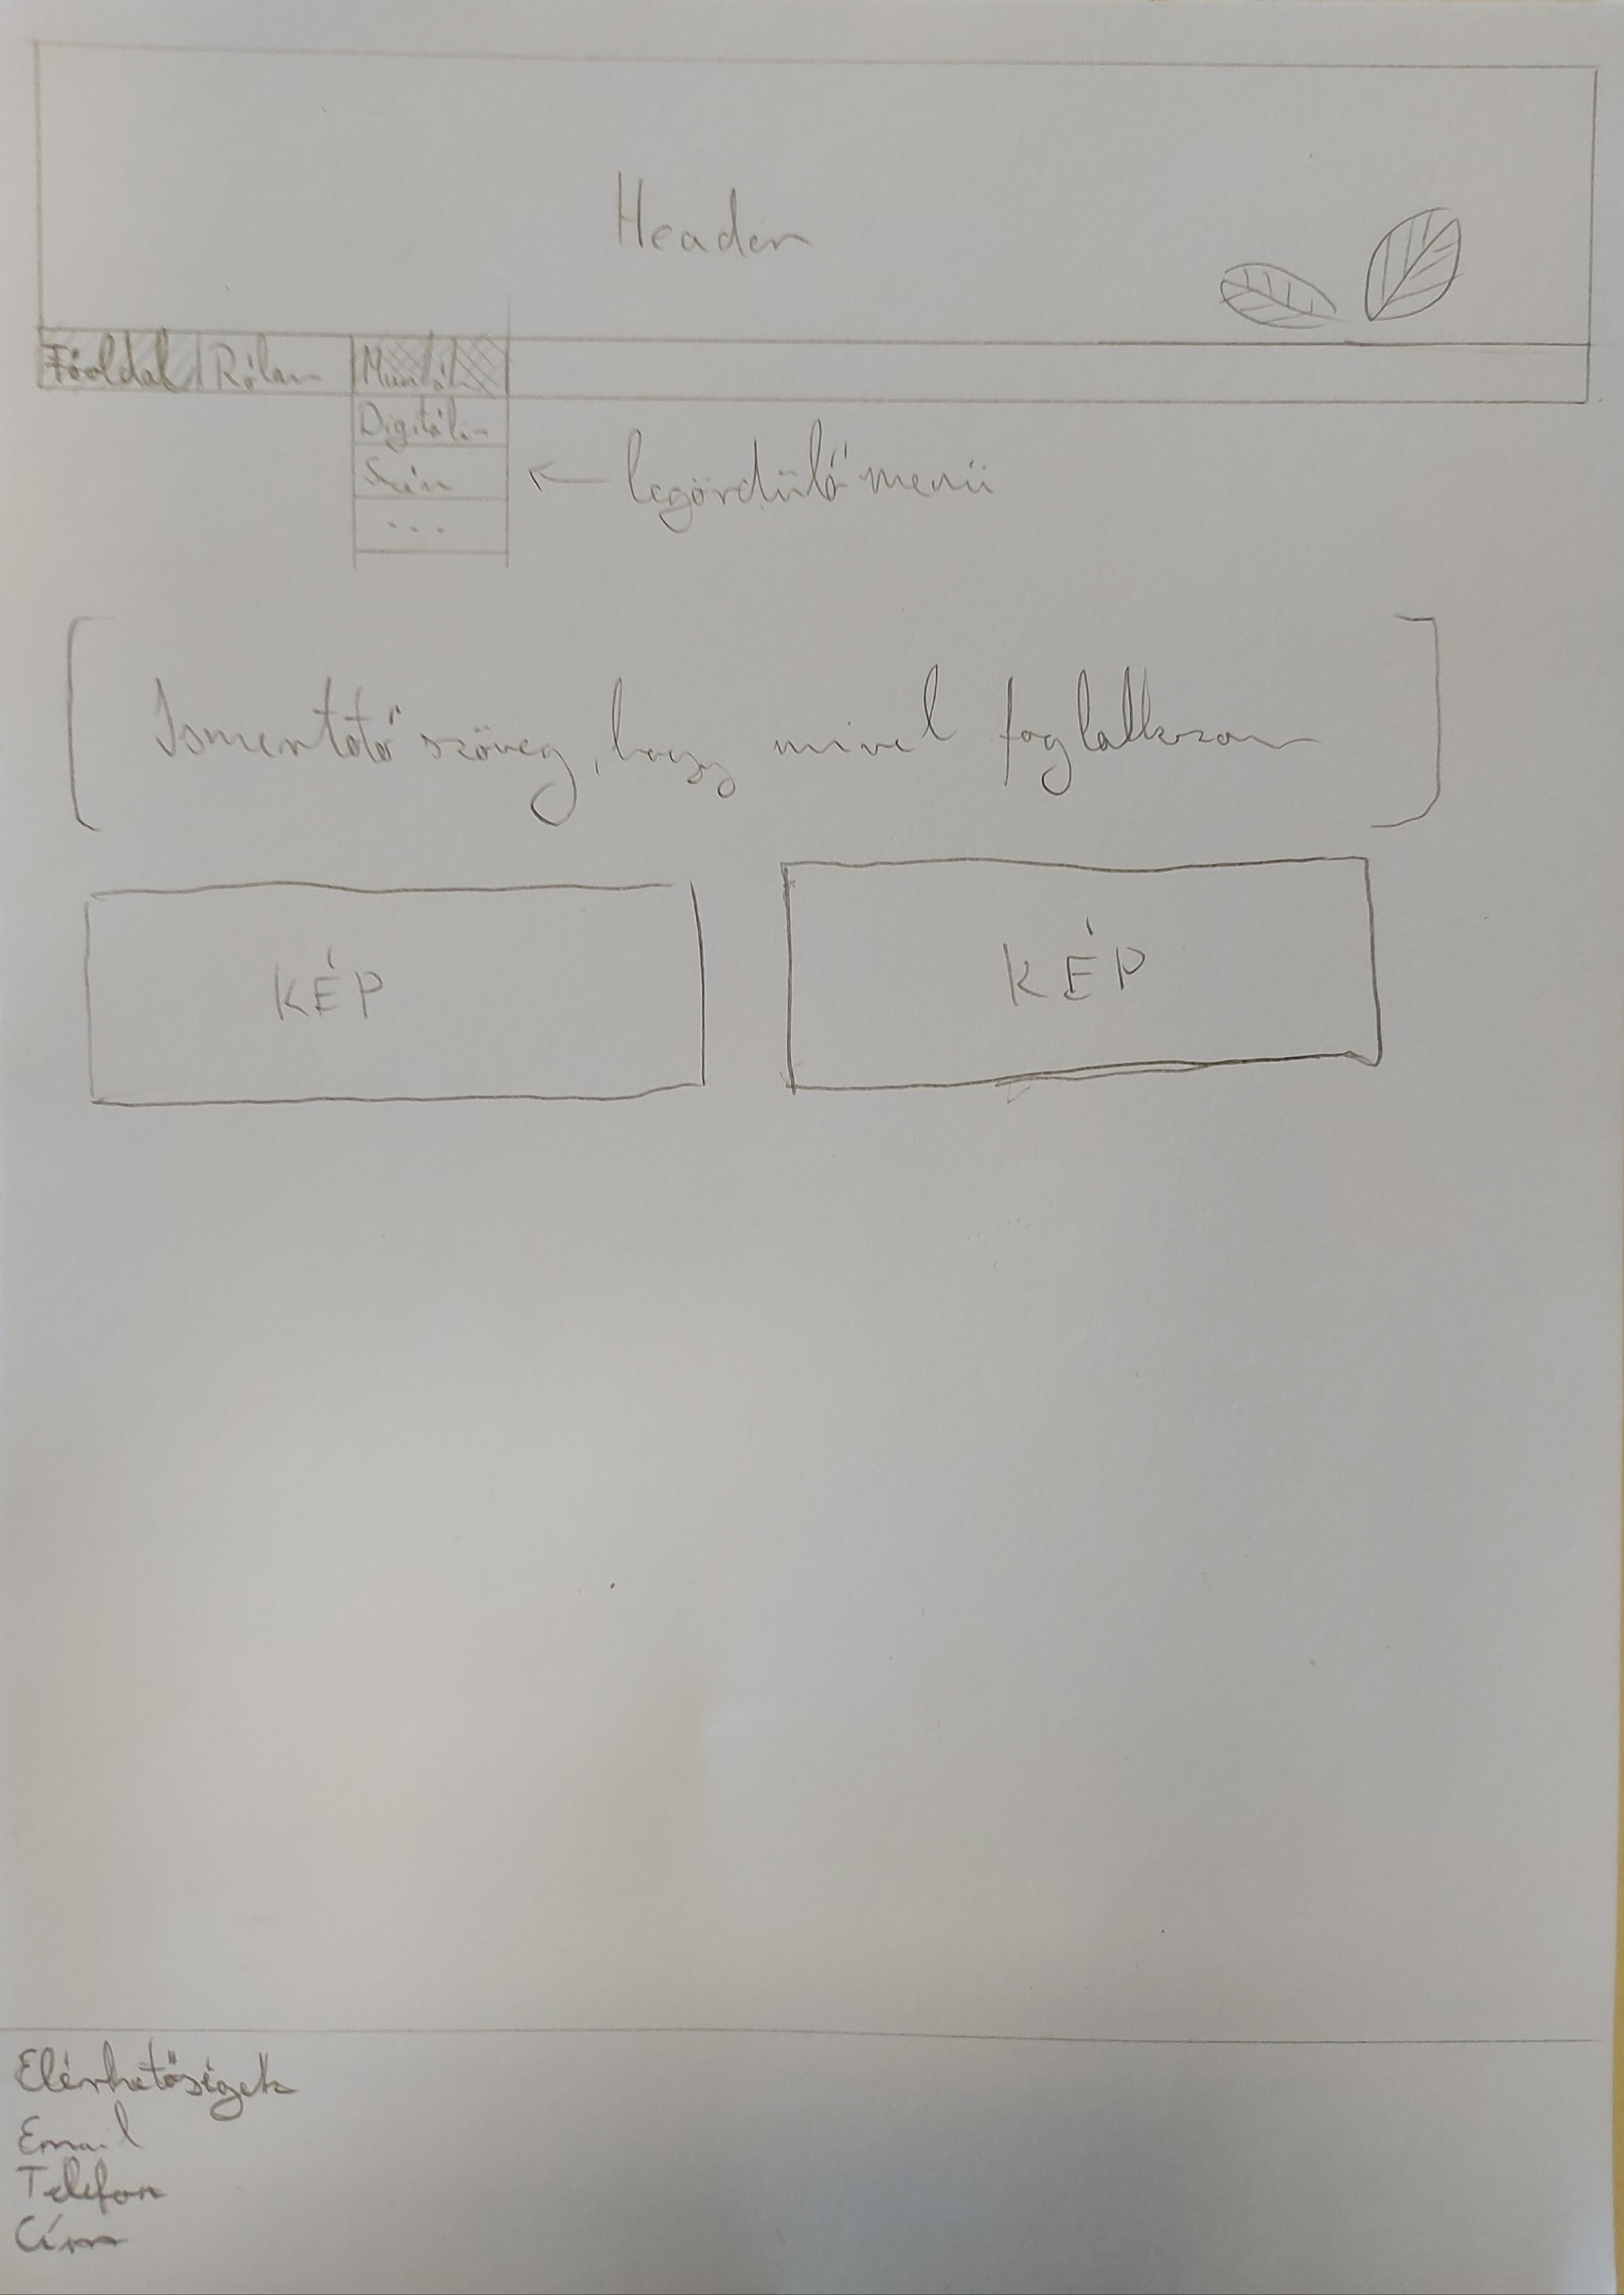 Header
Főoldal Rólam
Digitális
...
← legördülő menü
Ismertető szöveg, hogy mivel foglalkozom
KÉP KÉP
Elérhetőségek
Email
Telefon
Cím